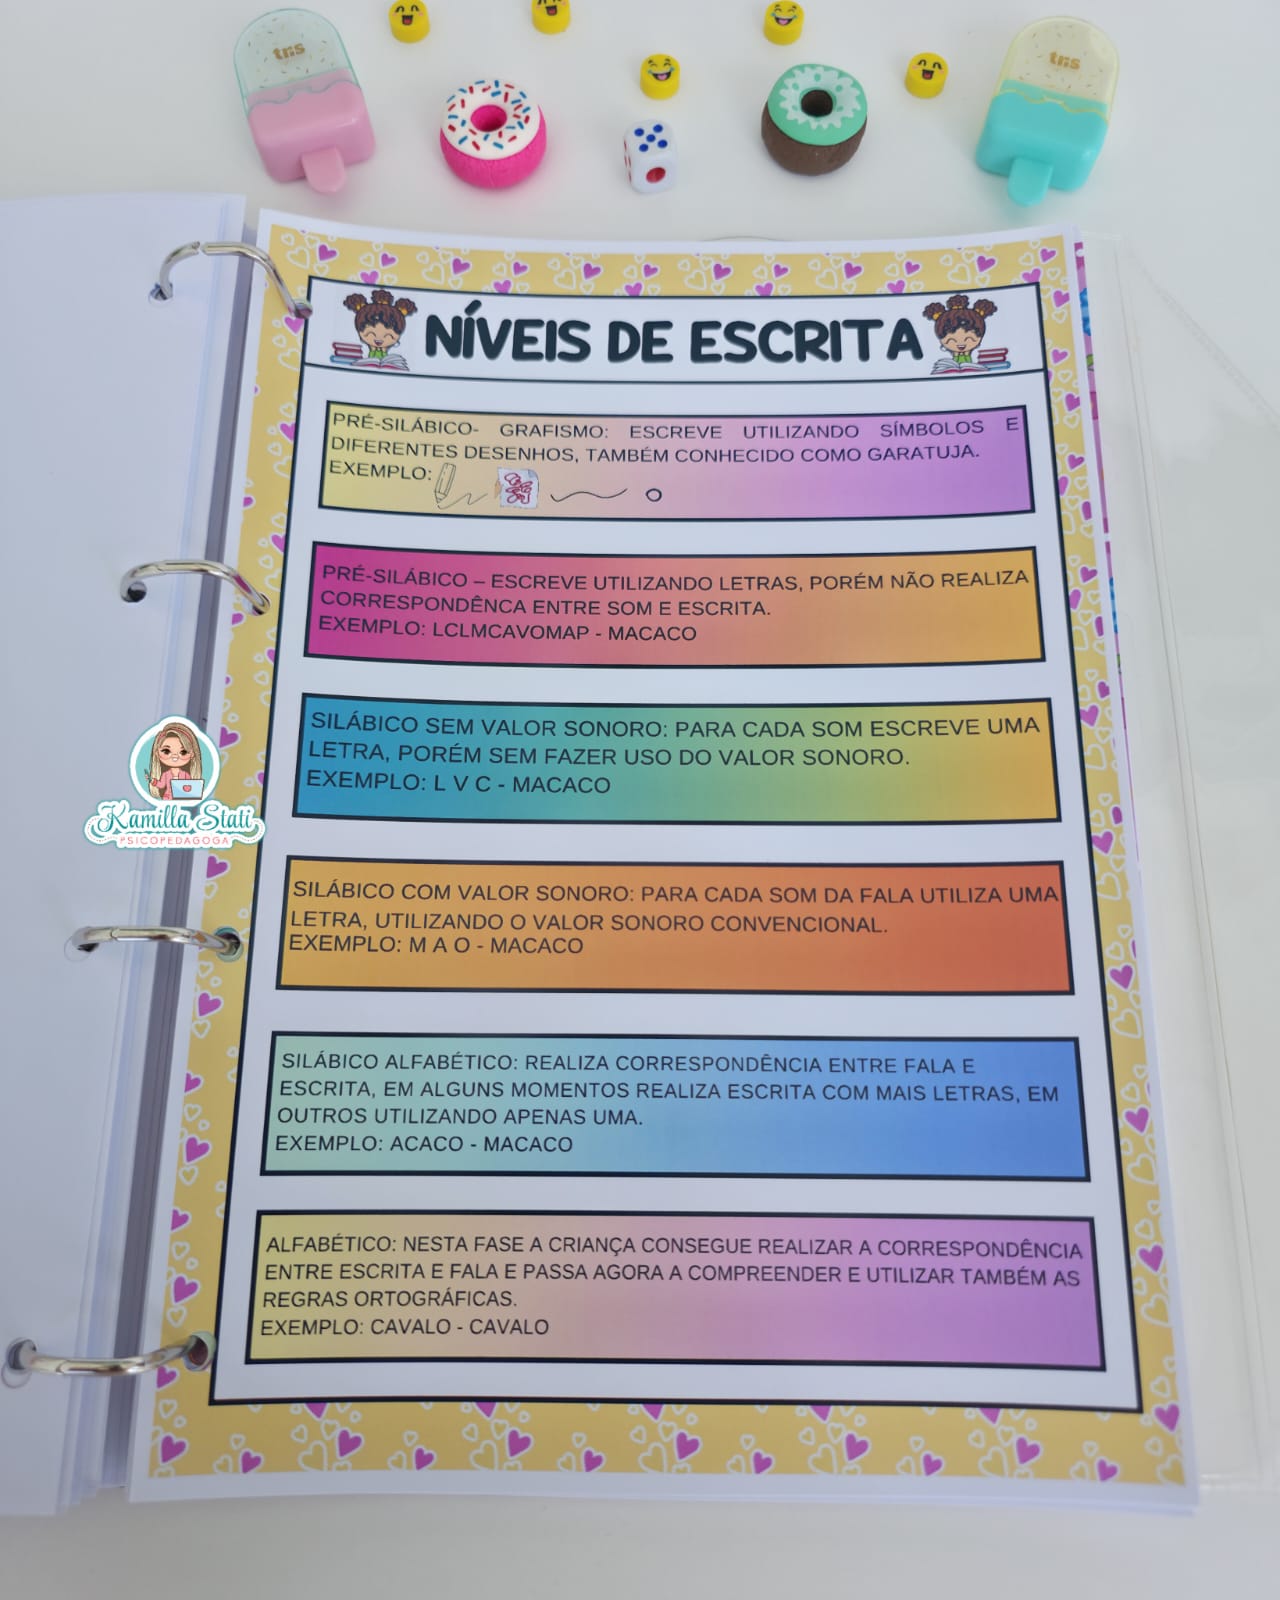 tris
tris
NÍVEIS DE ESCRITA
PRÉ-SILÁBICO- GRAFISMO: ESCREVE UTILIZANDO SÍMBOLOS E
DIFERENTES DESENHOS, TAMBÉM CONHECIDO COMO GARATUJA.
EXEMPLO:
PRÉ-SILÁBICO – ESCREVE UTILIZANDO LETRAS, PORÉM NÃO REALIZA
CORRESPONDÊNCA ENTRE SOM E ESCRITA.
EXEMPLO: LCLMCAVOMAP - MACACO
SILÁBICO SEM VALOR SONORO: PARA CADA SOM ESCREVE UMA
LETRA, PORÉM SEM FAZER USO DO VALOR SONORO.
EXEMPLO: L V C - MACACO
Kamilla Stati
PSICOPEDAGOGA
SILÁBICO COM VALOR SONORO: PARA CADA SOM DA FALA UTILIZA UMA
LETRA, UTILIZANDO O VALOR SONORO CONVENCIONAL.
EXEMPLO: M A O - MACACO
SILÁBICO ALFABÉTICO: REALIZA CORRESPONDÊNCIA ENTRE FALA E
ESCRITA, EM ALGUNS MOMENTOS REALIZA ESCRITA COM MAIS LETRAS, EM
OUTROS UTILIZANDO APENAS UMA.
EXEMPLO: ACACO - MACACO
ALFABÉTICO: NESTA FASE A CRIANÇA CONSEGUE REALIZAR A CORRESPONDÊNCIA
ENTRE ESCRITA E FALA E PASSA AGORA A COMPREENDER E UTILIZAR TAMBÉM AS
REGRAS ORTOGRÁFICAS.
EXEMPLO: CAVALO - CAVALO